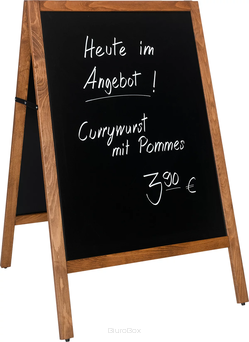 Heute im
Angebot !
Currywurst
mit Pommes
3,90 €
BüroBox